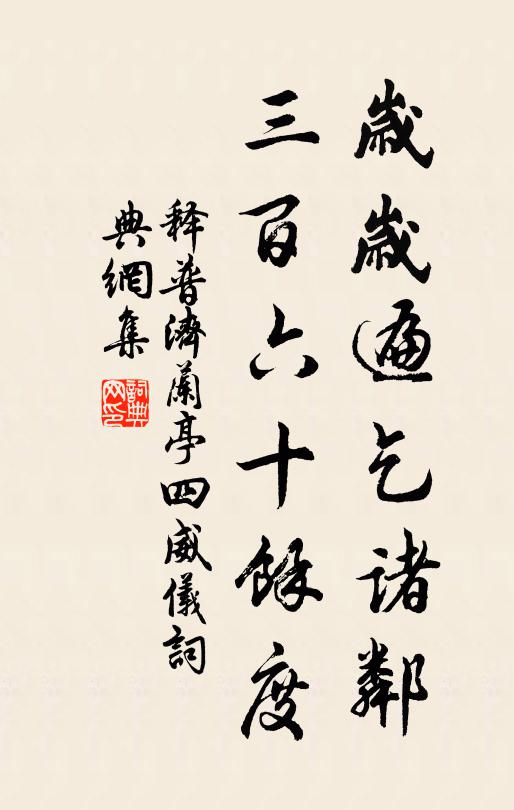 歲歲遍乞諸鄰
三百六十餘度
释普濟蘭亭四威儀詞
典網集
詞典网印